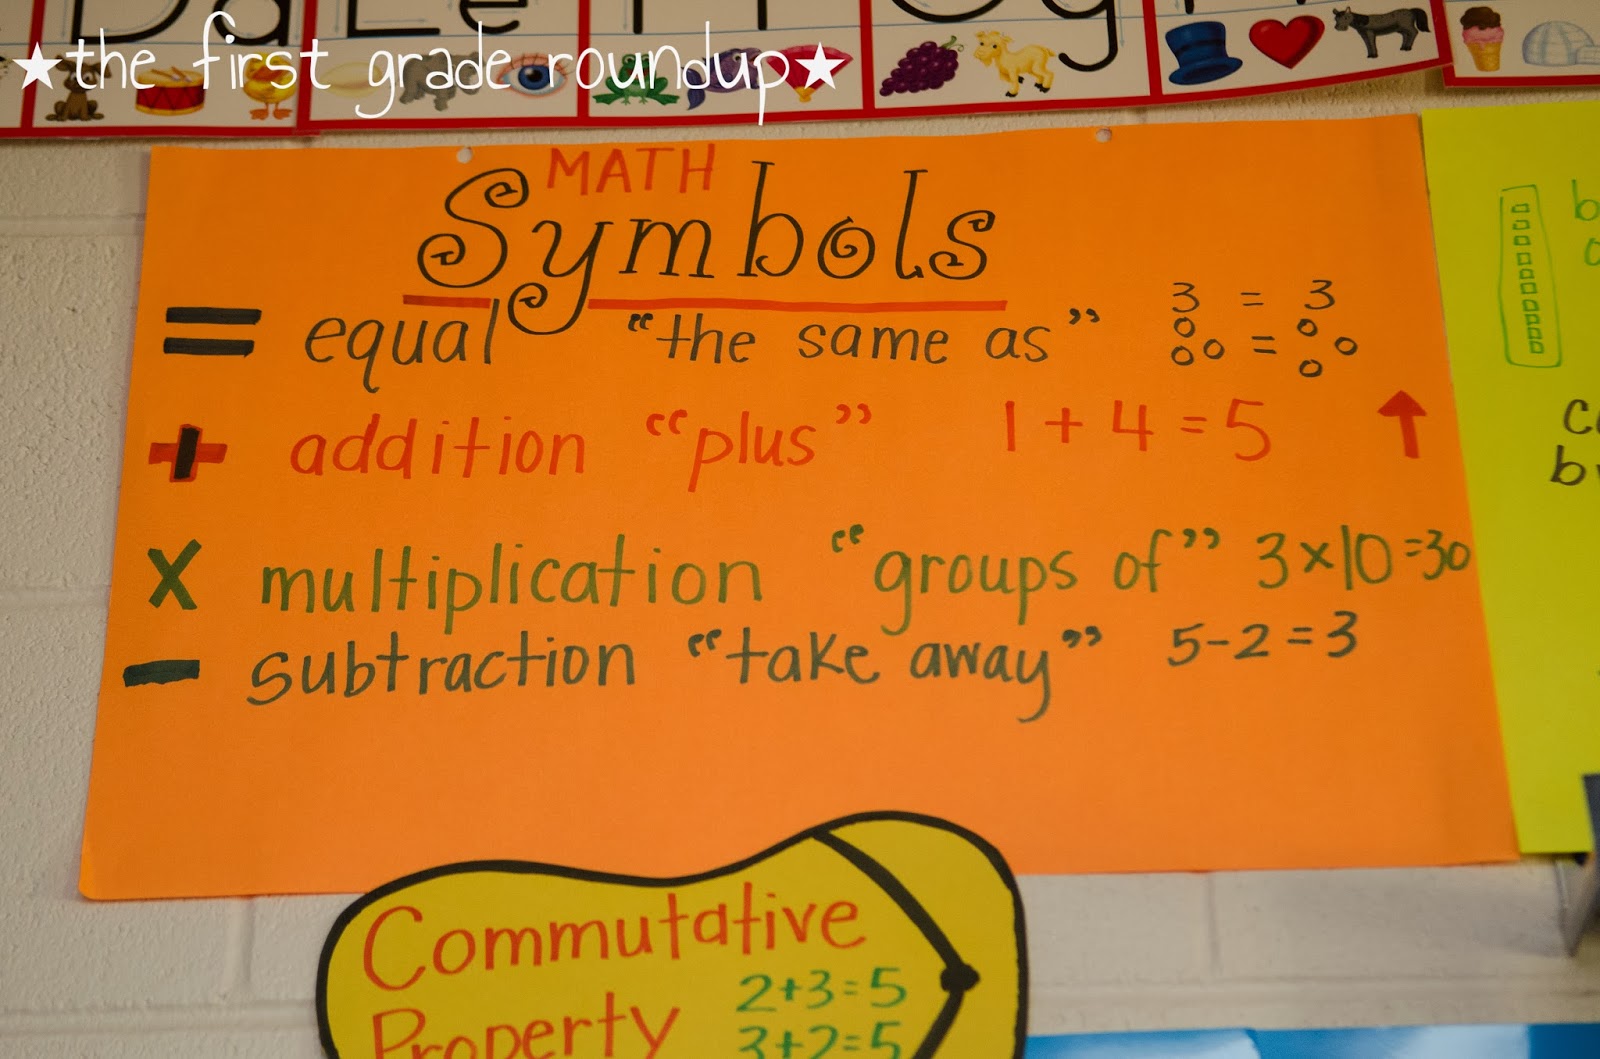 ★the first grade roundup★
MATH
Symbols
= equal "the same as" 3 = 3
+ addition "plus" 1 + 4 = 5 ↑
x multiplication "groups of" 3 x 10 = 30
- subtraction "take away" 5 - 2 = 3
Commutative
Property
2+3=5
3+2=5